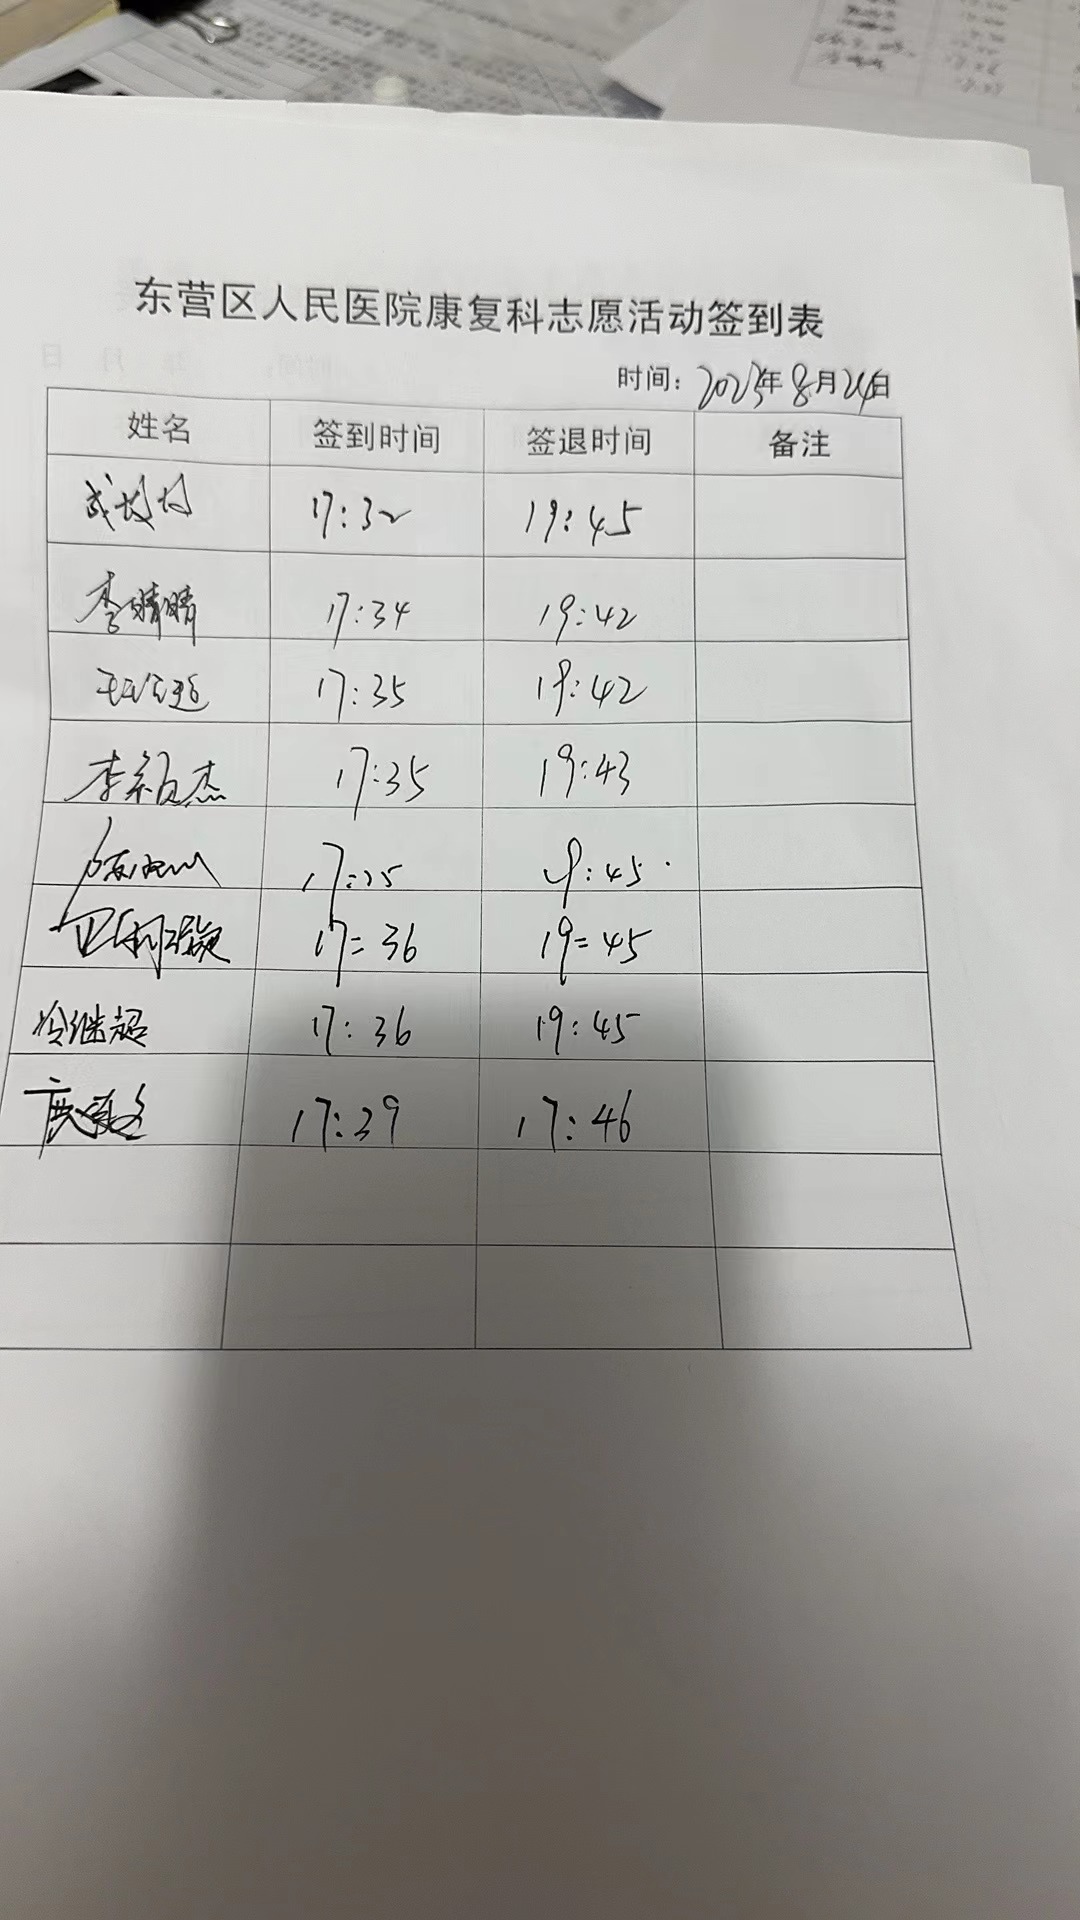 东营区人民医院康复科志愿活动签到表
时间：2023年8月24日
姓名 签到时间 签退时间 备注
17:32 19:45
李晴晴 17:34 19:42
17:35 19:42
李绍杰 17:35 19:43
17:35 19:45
17:36 19:45
冷继超 17:36 19:45
17:39 17:46